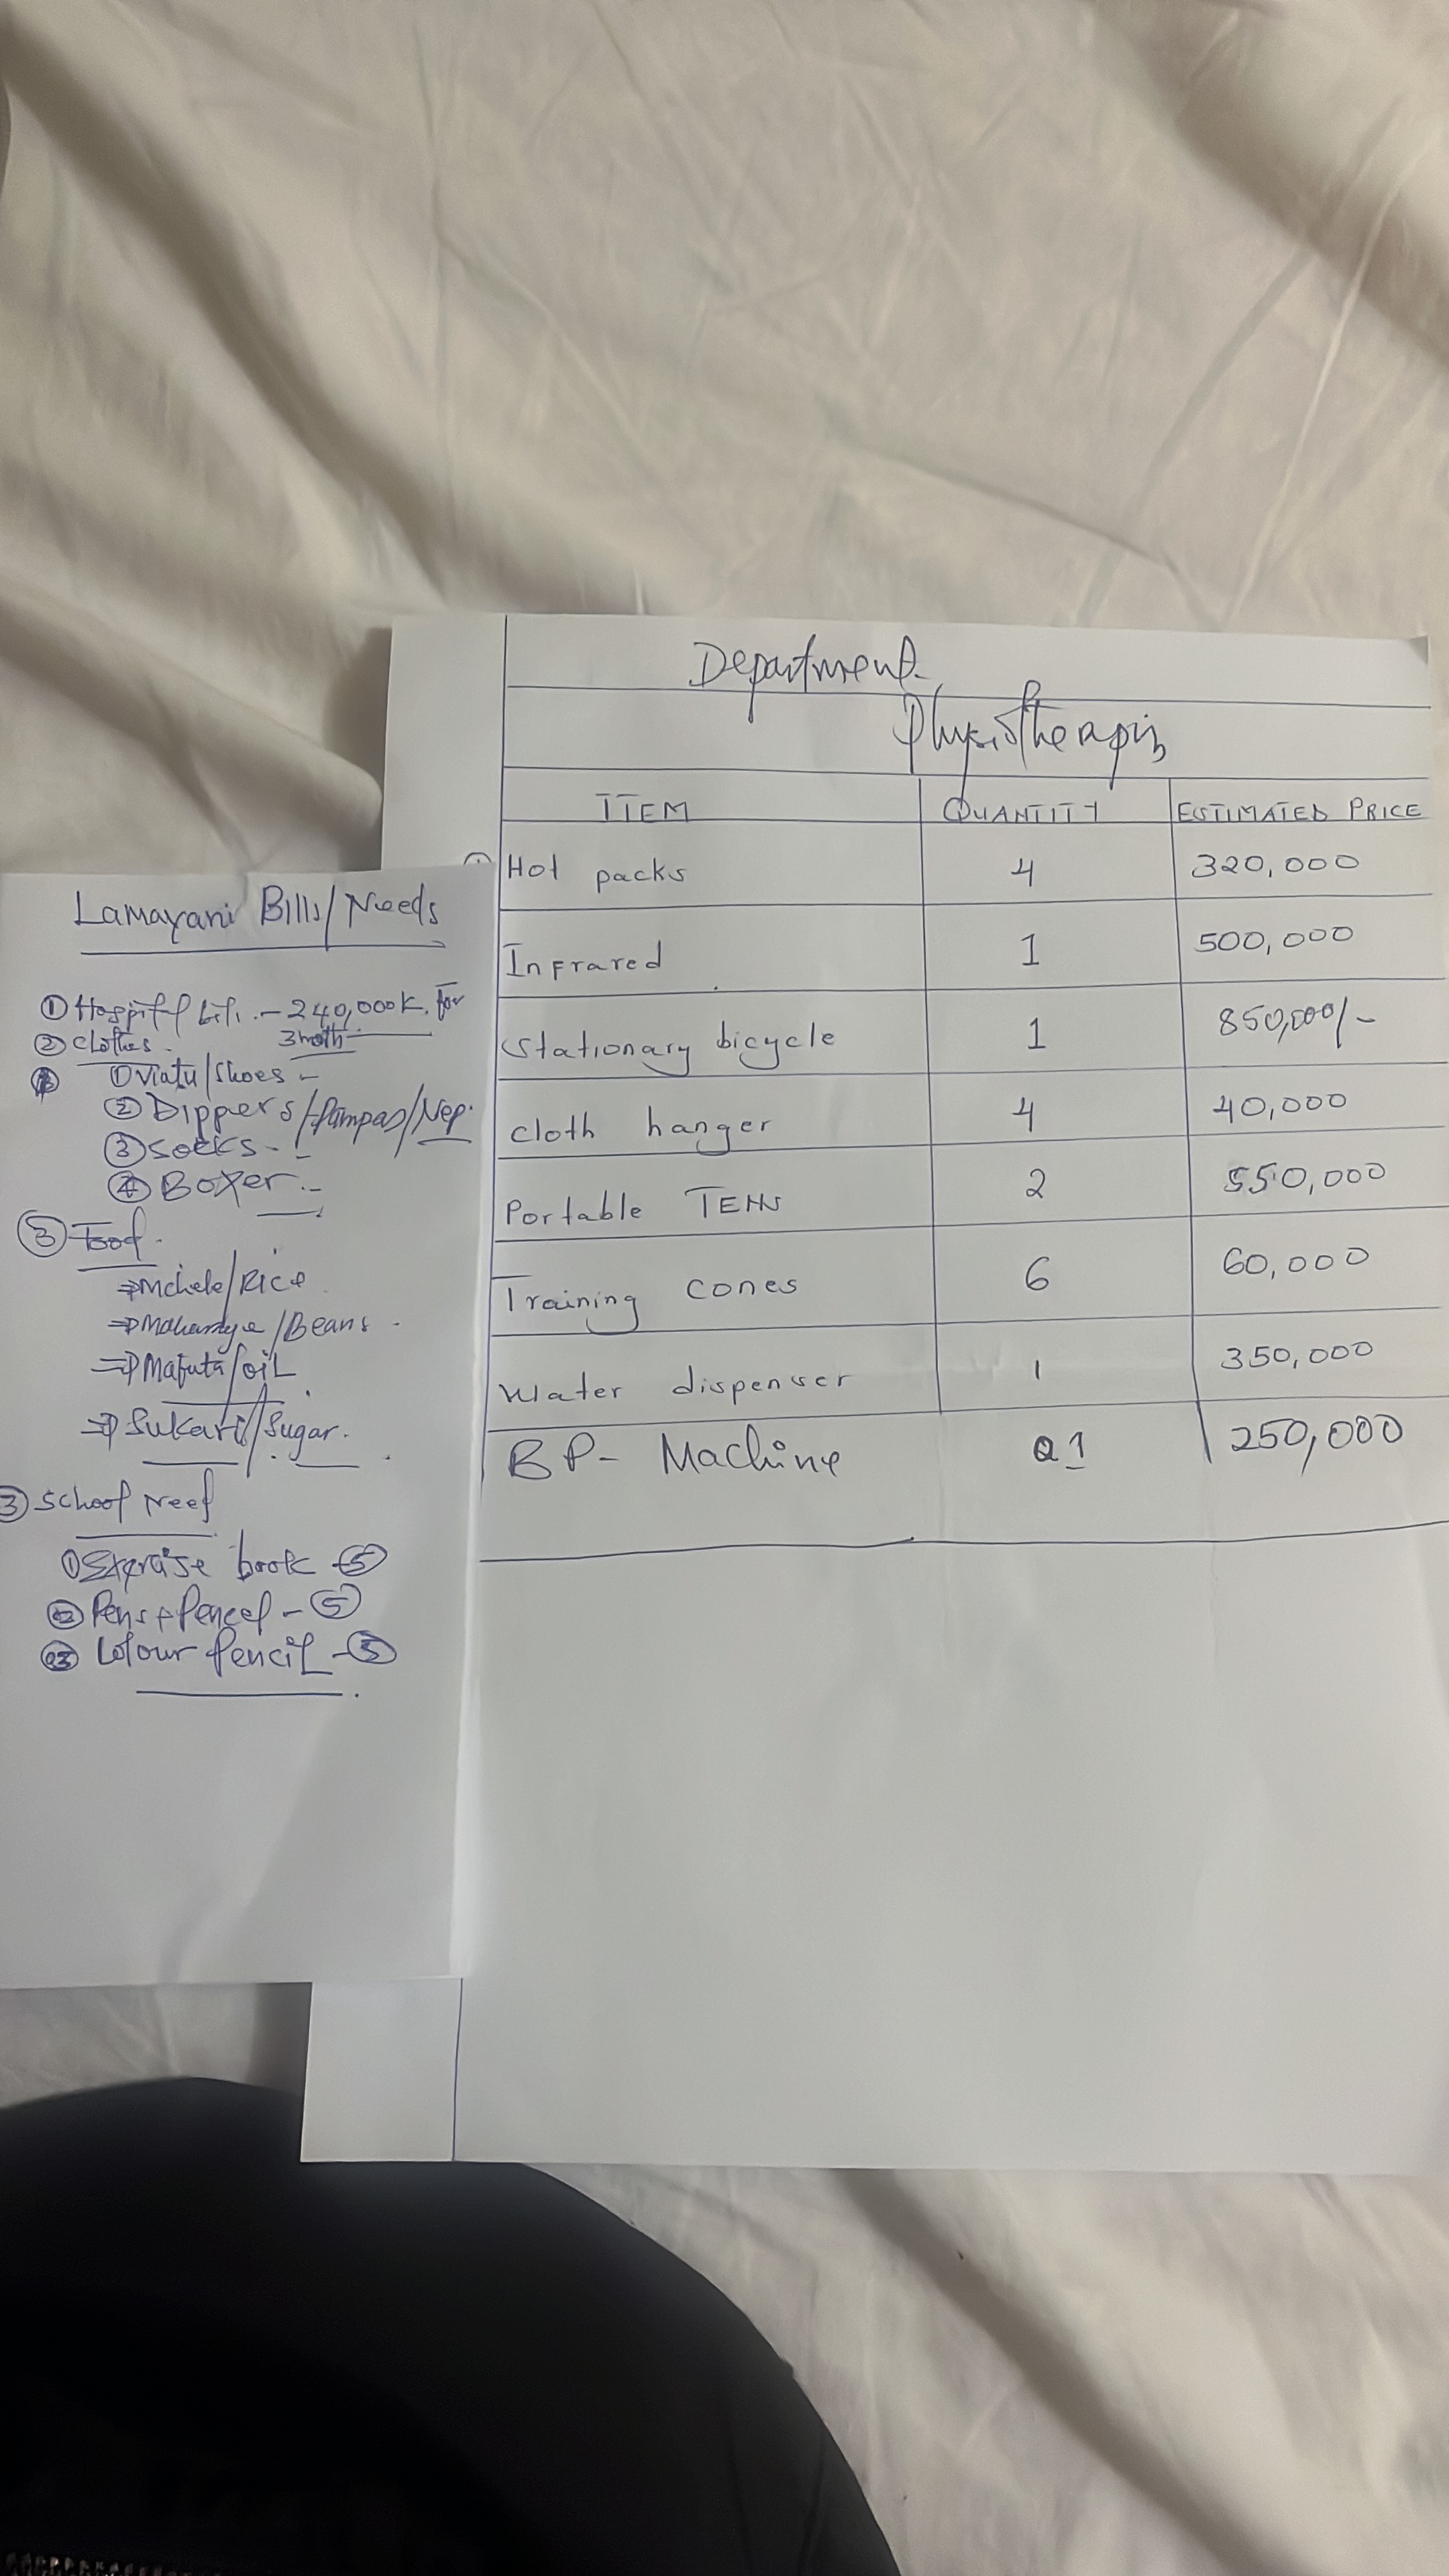 Lamayani Bills/Needs
① Hospital bill. - 240,000K. for
3 moth
② Clothes -
① Viatu/Shoes -
② Dippers/Pampas/Nep.
③ Socks - -
④ Boxer. -
③ Food.
⇒ Mchele/Rice
⇒ Maharage/Beans -
⇒ Mafuta/oil
⇒ Sukari/Sugar.
③ School Need
① Exercise book - ⑤
② Pens + Pencel - ⑤
03 Colour Pencil - ⑤
Department
Physiotherapis
ITEM QUANTITY ESTIMATED PRICE
Hot packs 4 320,000
Infrared 1 500,000
Stationary bicycle 1 850,000/-
Cloth hanger 4 40,000
Portable TENS 2 550,000
Training cones 6 60,000
Water dispenser 1 350,000
BP- Machine 1 250,000